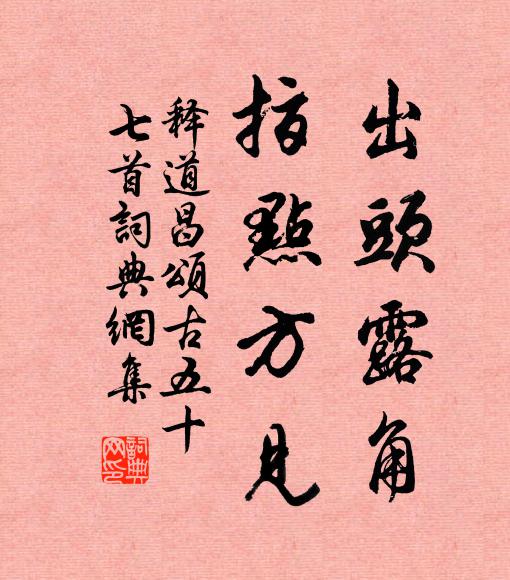 出頭露角
指點方見
释道昌頌古五十
七首詞典網集
詞典
网印